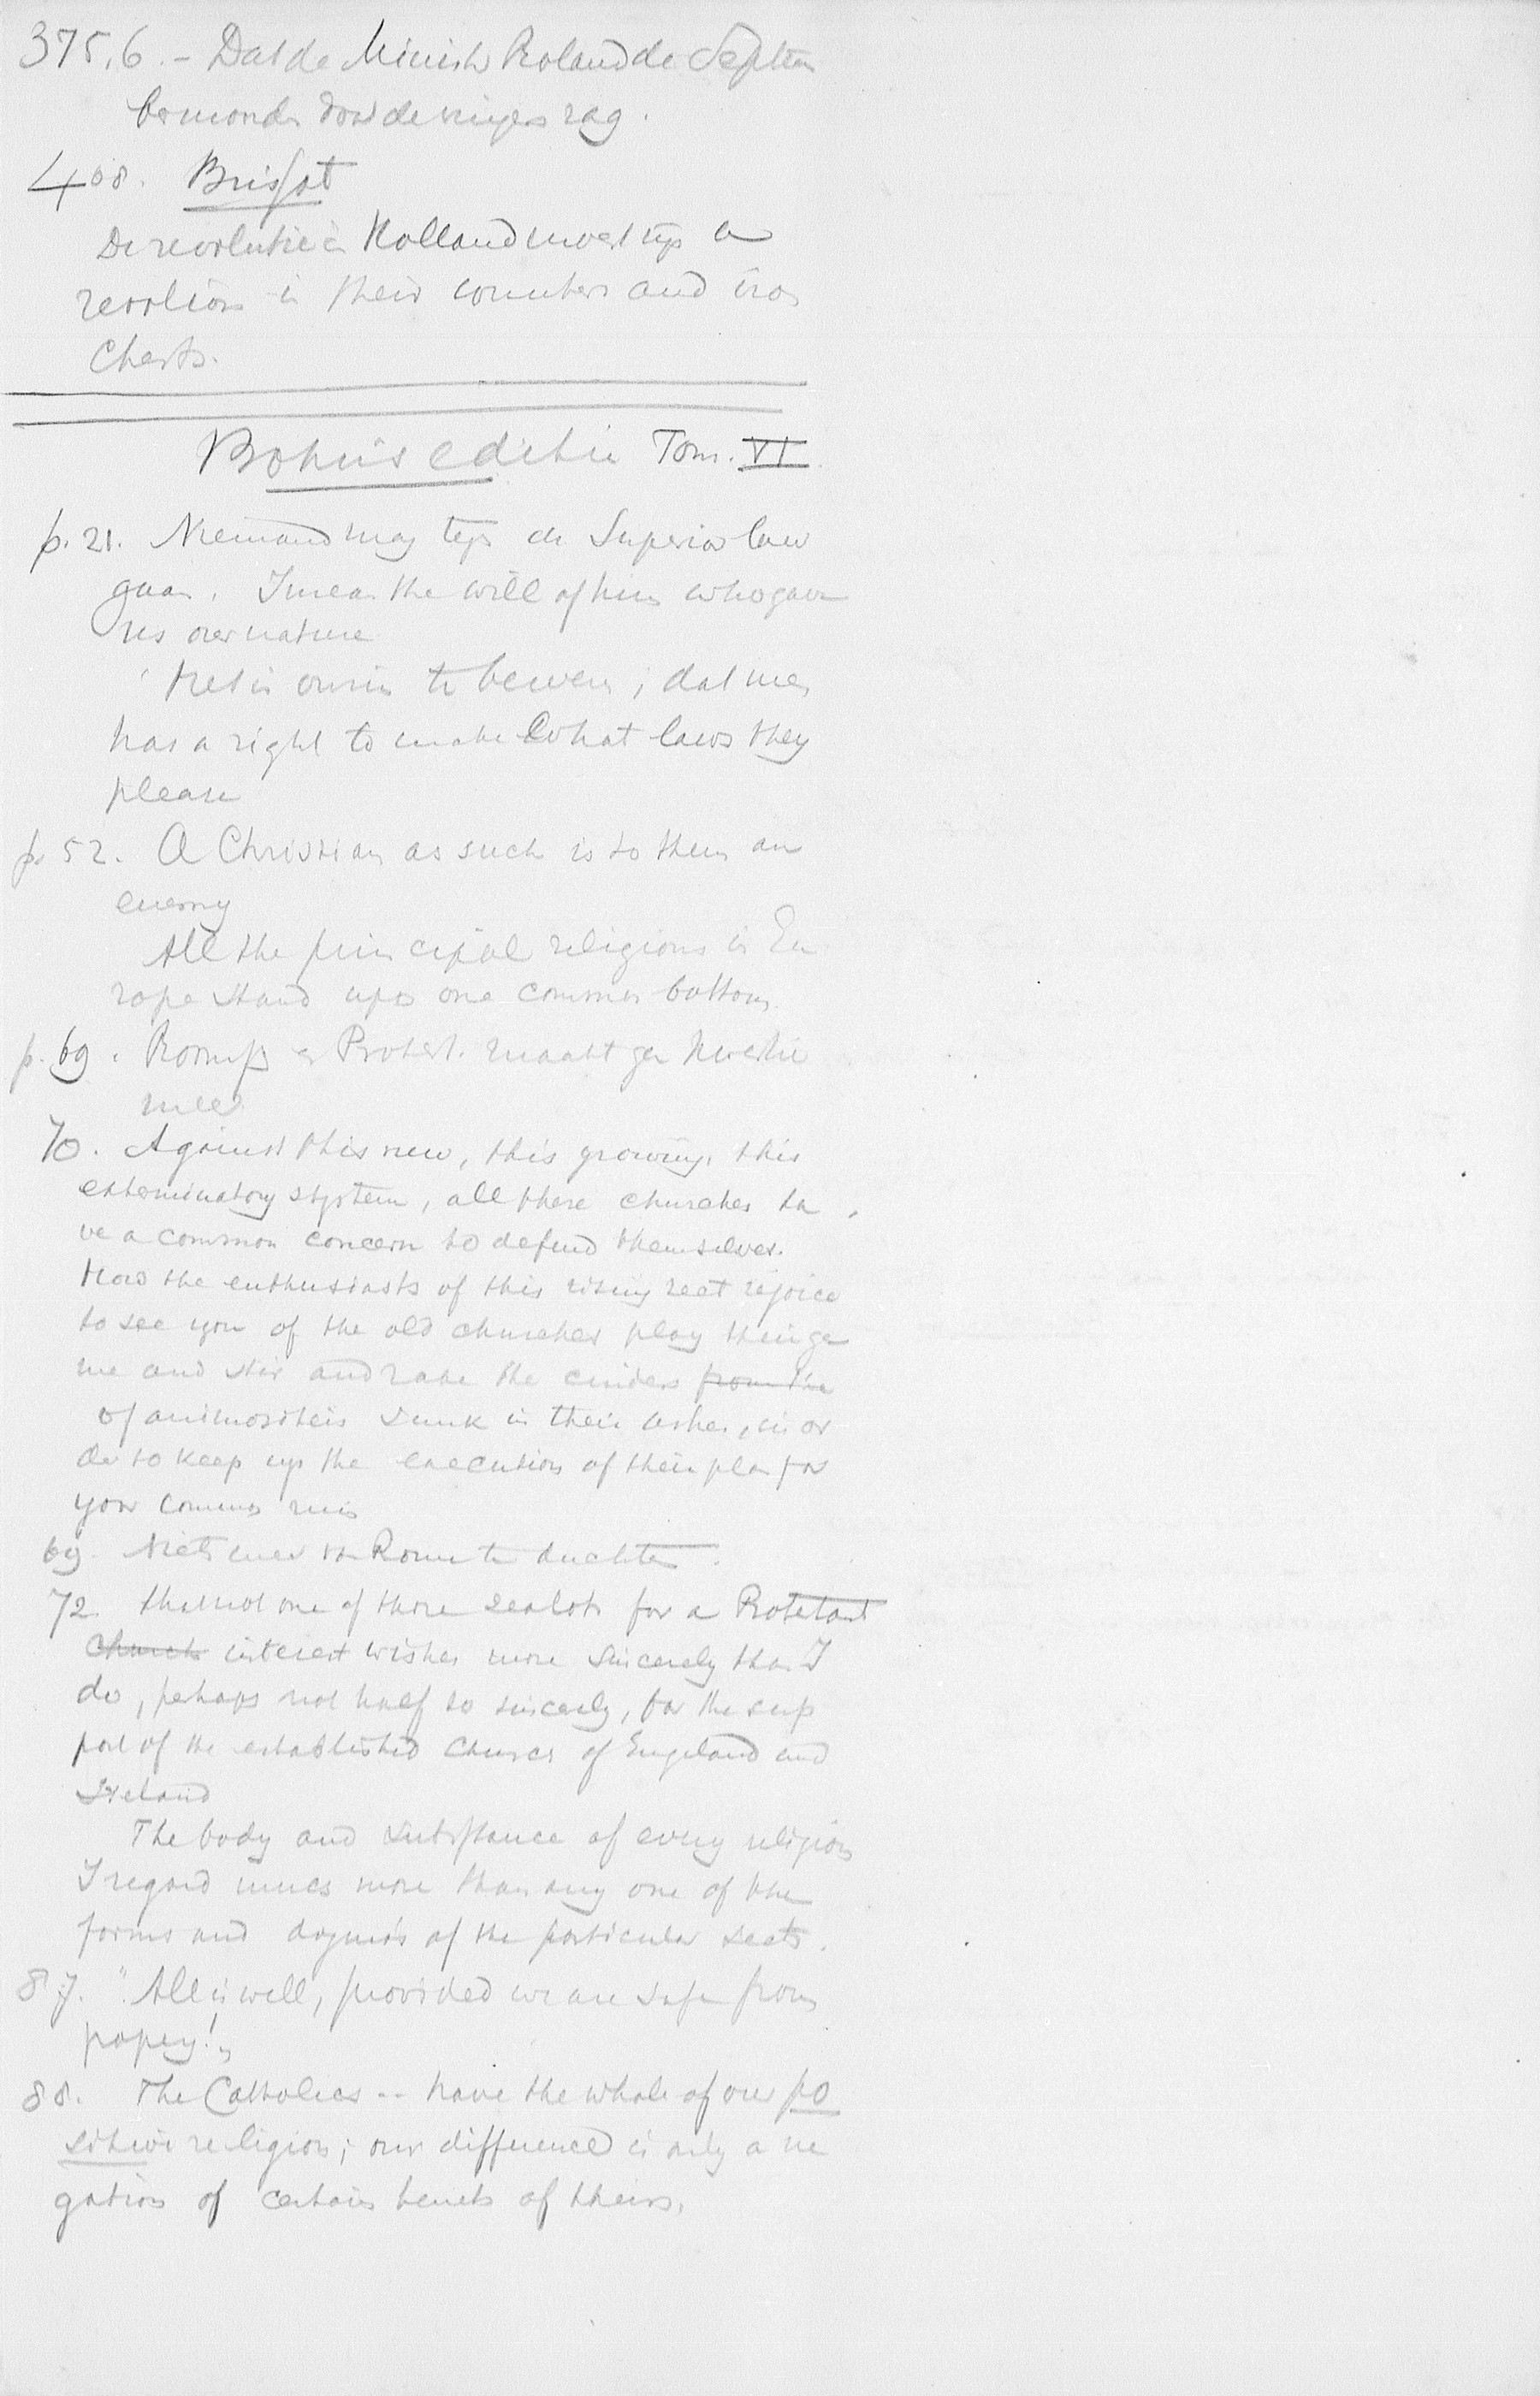 375,6. - Dat de Minister Roland de Septem
bermoorden door de vingers zag.
408. Brissot
De revolutie in Holland moest rusten op a
revolution in their counters and iron
Chests.
Bohn's editie Tom. VI
p. 21. Niemand mag tegen de Superior law
gaan. I mean the will of him who gave
us our nature
Het is onzin te beweren, dat men
has a right to make what laws they
please
p. 52. A Christian as such is to them an
enemy
All the principal religions in Eu
rope stand upon one common bottom.
p. 69. Roomsch en Protest. maakt geen kwestie
meer
70. Against this new, this growing, this
exterminatory system, all these churches ha
ve a common concern to defend themselves.
How the enthusiasts of this rising sect rejoice
to see you of the old churches play their ga
me and stir and rake the cinders from the
of animosities sunk in their ashes, in or
der to keep up the execution of their plan for
your common ruin
69. Niets meer van Rome te duchten.
72. that not one of those zealots for a Protestant
Church interest wishes more sincerely than I
do, perhaps not half so sincerely, for the sup
port of the established Church of England and
Ireland
The body and substance of every religion
I regard much more than any one of the
forms and dogma's of the particular sects.
87. "All is well, provided we are safe from
popery!"
88. The Catholics -- have the whole of our po
sitive religion; our difference is only a ne
gation of certain tenets of theirs.